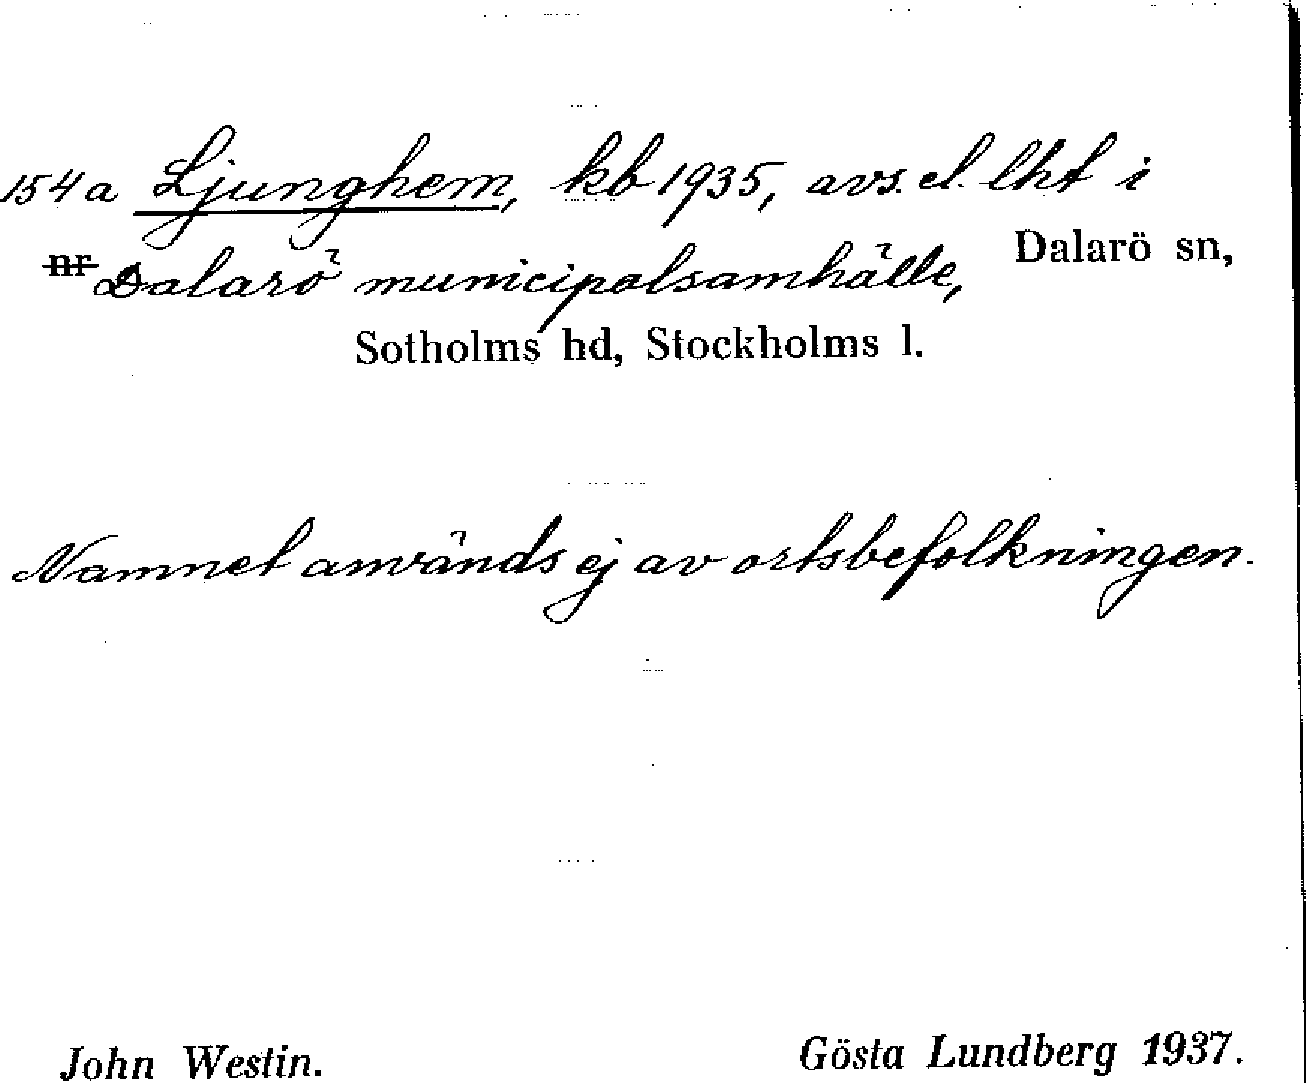 154a Ljunghem, kb 1935, avs. el. lht i
nr Dalarö municipalsamhälle, Dalarö sn,
Sotholms hd, Stockholms l.
Namnet används ej av ortsbefolkningen.
John Westin. Gösta Lundberg 1937.